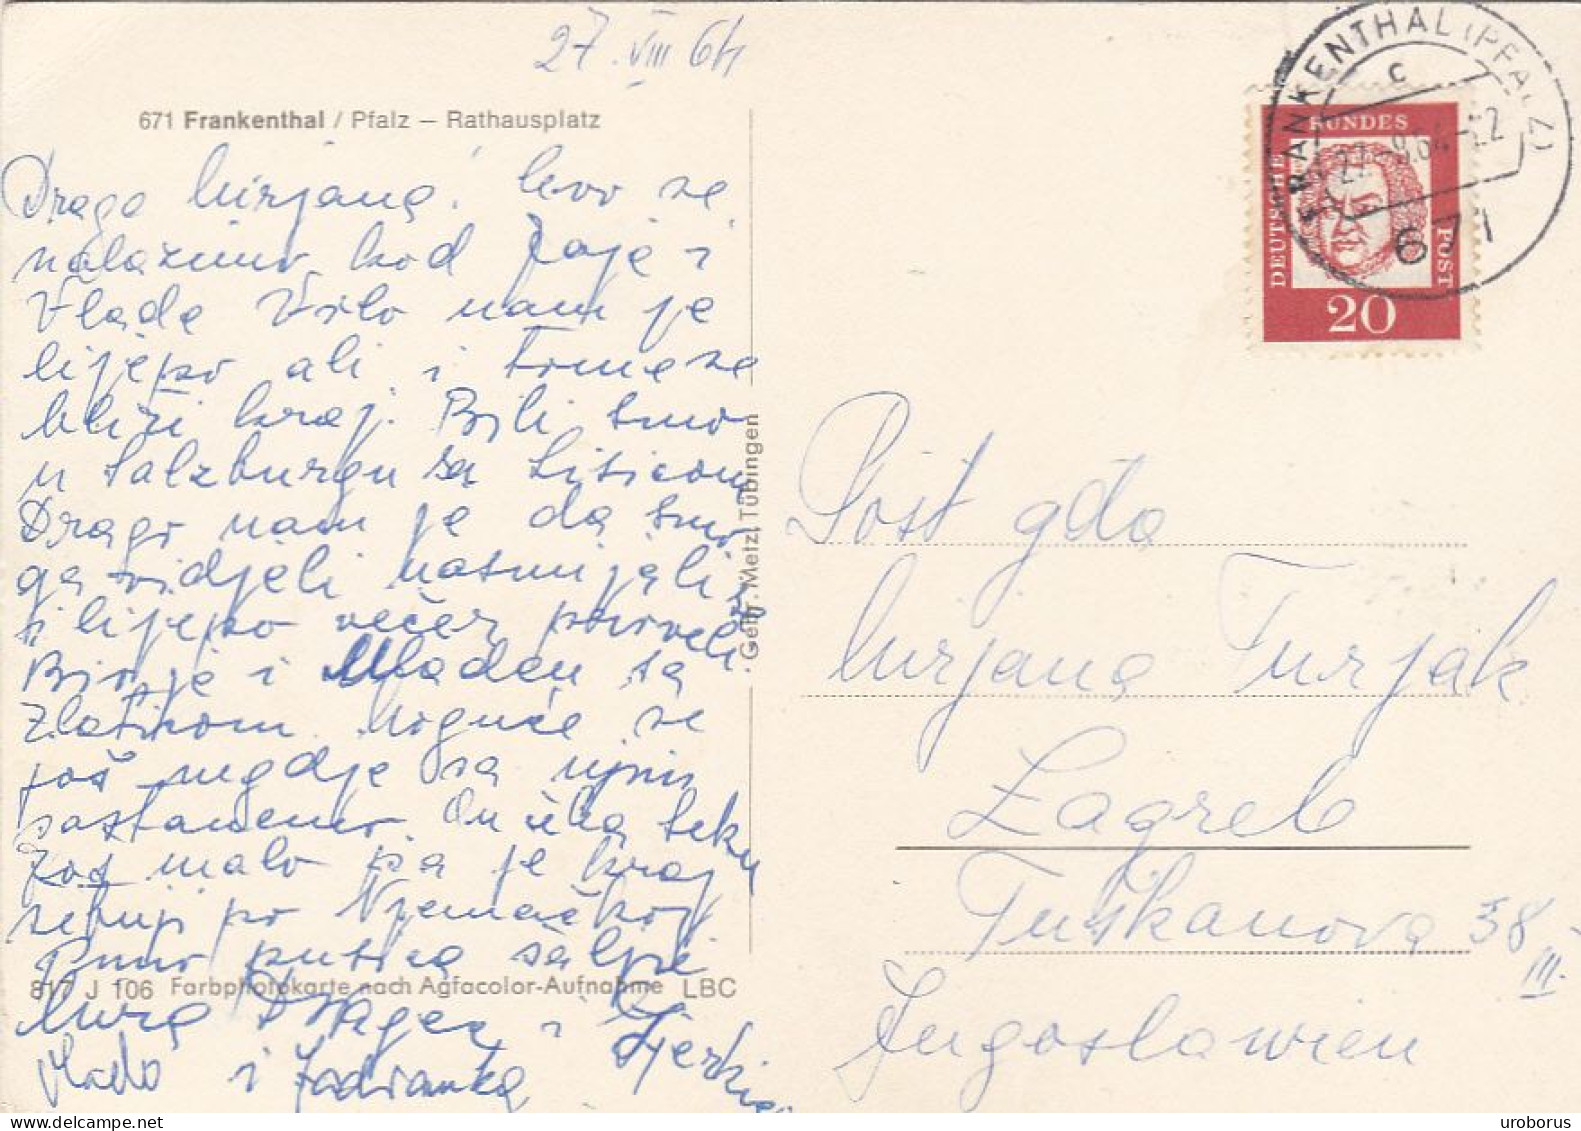 27. VIII 64
671 Frankenthal / Pfalz – Rathausplatz
Draga Mirjana! Evo se
nalazimo kod Zoje i
Vlade Vrlo nam je
lijepo ali i tome se
bliži kraj. Bili smo
u Salzburgu sa Lisicom
Drago nam je da smo
ga vidjeli nasmijali
i lijepo večer proveli.
Bio je i Mladen sa
Zlatkom Moguće se
još negdje sa njim
sastanemo.
Još malo pa je kraj
po Njemačkoj
Puno pusica šalje
Mira Dragec i
Vlado i Jadranka
817 J 106 Farbphotokarte nach Agfacolor-Aufnahme LBC
Gebr. Metz, Tübingen
FRANKENTHAL (PFALZ)
c
671
DEUTSCHE BUNDESPOST
20
Pošt gđa
Mirjana Turjak
Zagreb
Tuškanova 38
III.
Jugoslawien
uroborus